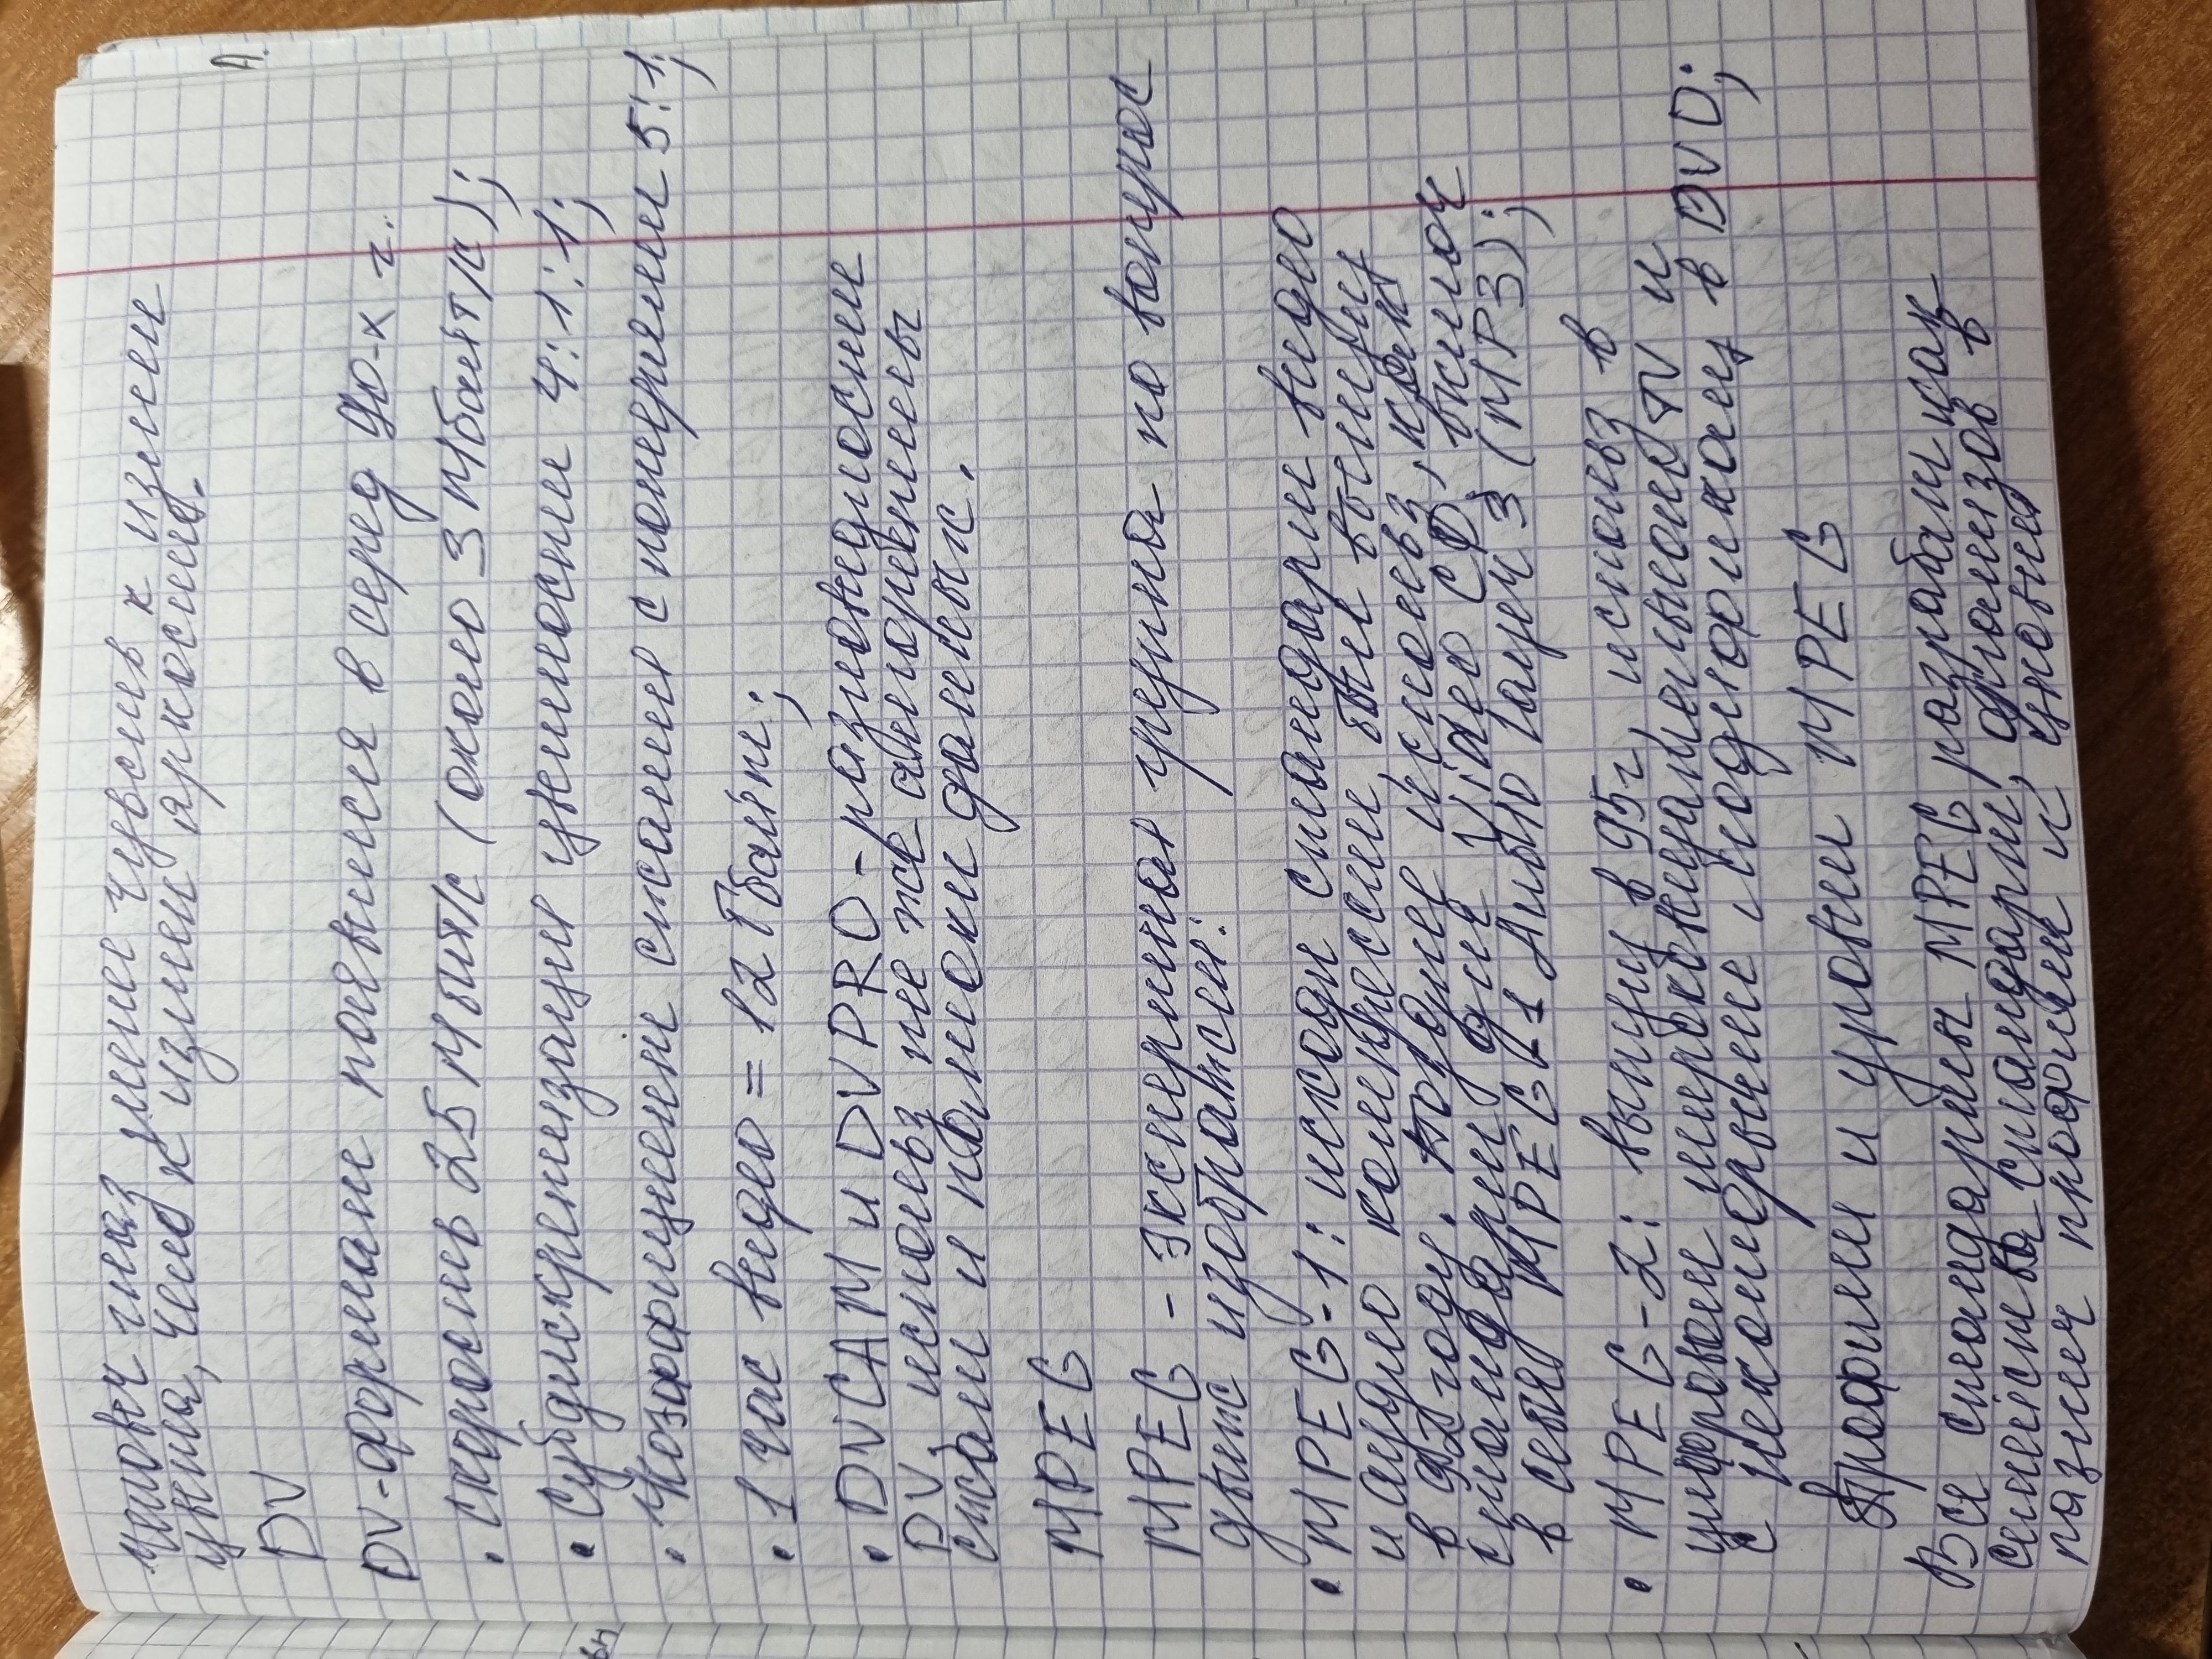 человеч глаз менее чувств к измен
цвета, чем к измен яркости.
DV
DV-формат появился в серед 90-х г.
• скорость 25 Мбит/с (около 3 Мбайт/с);
• Субдискретизация цветности 4:1:1;
• Коэффициент сжатия с потерями 5:1;
• 1 час видео = 12 Гбайт;
• DVCAM и DVPRO - разновидности
DV, использ те же алгоритмы
сжат и потоки данных.
MPEG
MPEG - экспертная группа по вопрос
движ изображен:
• MPEG-1: исходн стандарт видео
и аудио компрессии, был выпущ
в 92 году. Позднее использ, как
стандарт для Video CD, включ
в себя MPEG-1 Audio layer 3 (MP3);
• MPEG-2: выпущ в 95г, использ в
цифровом широковещательном TV и
с некоторыми модификац в DVD;
Профили и уровни MPEG
Все стандарты MPEG разработ как
семейства стандарт, организов в
различ профили и уровни